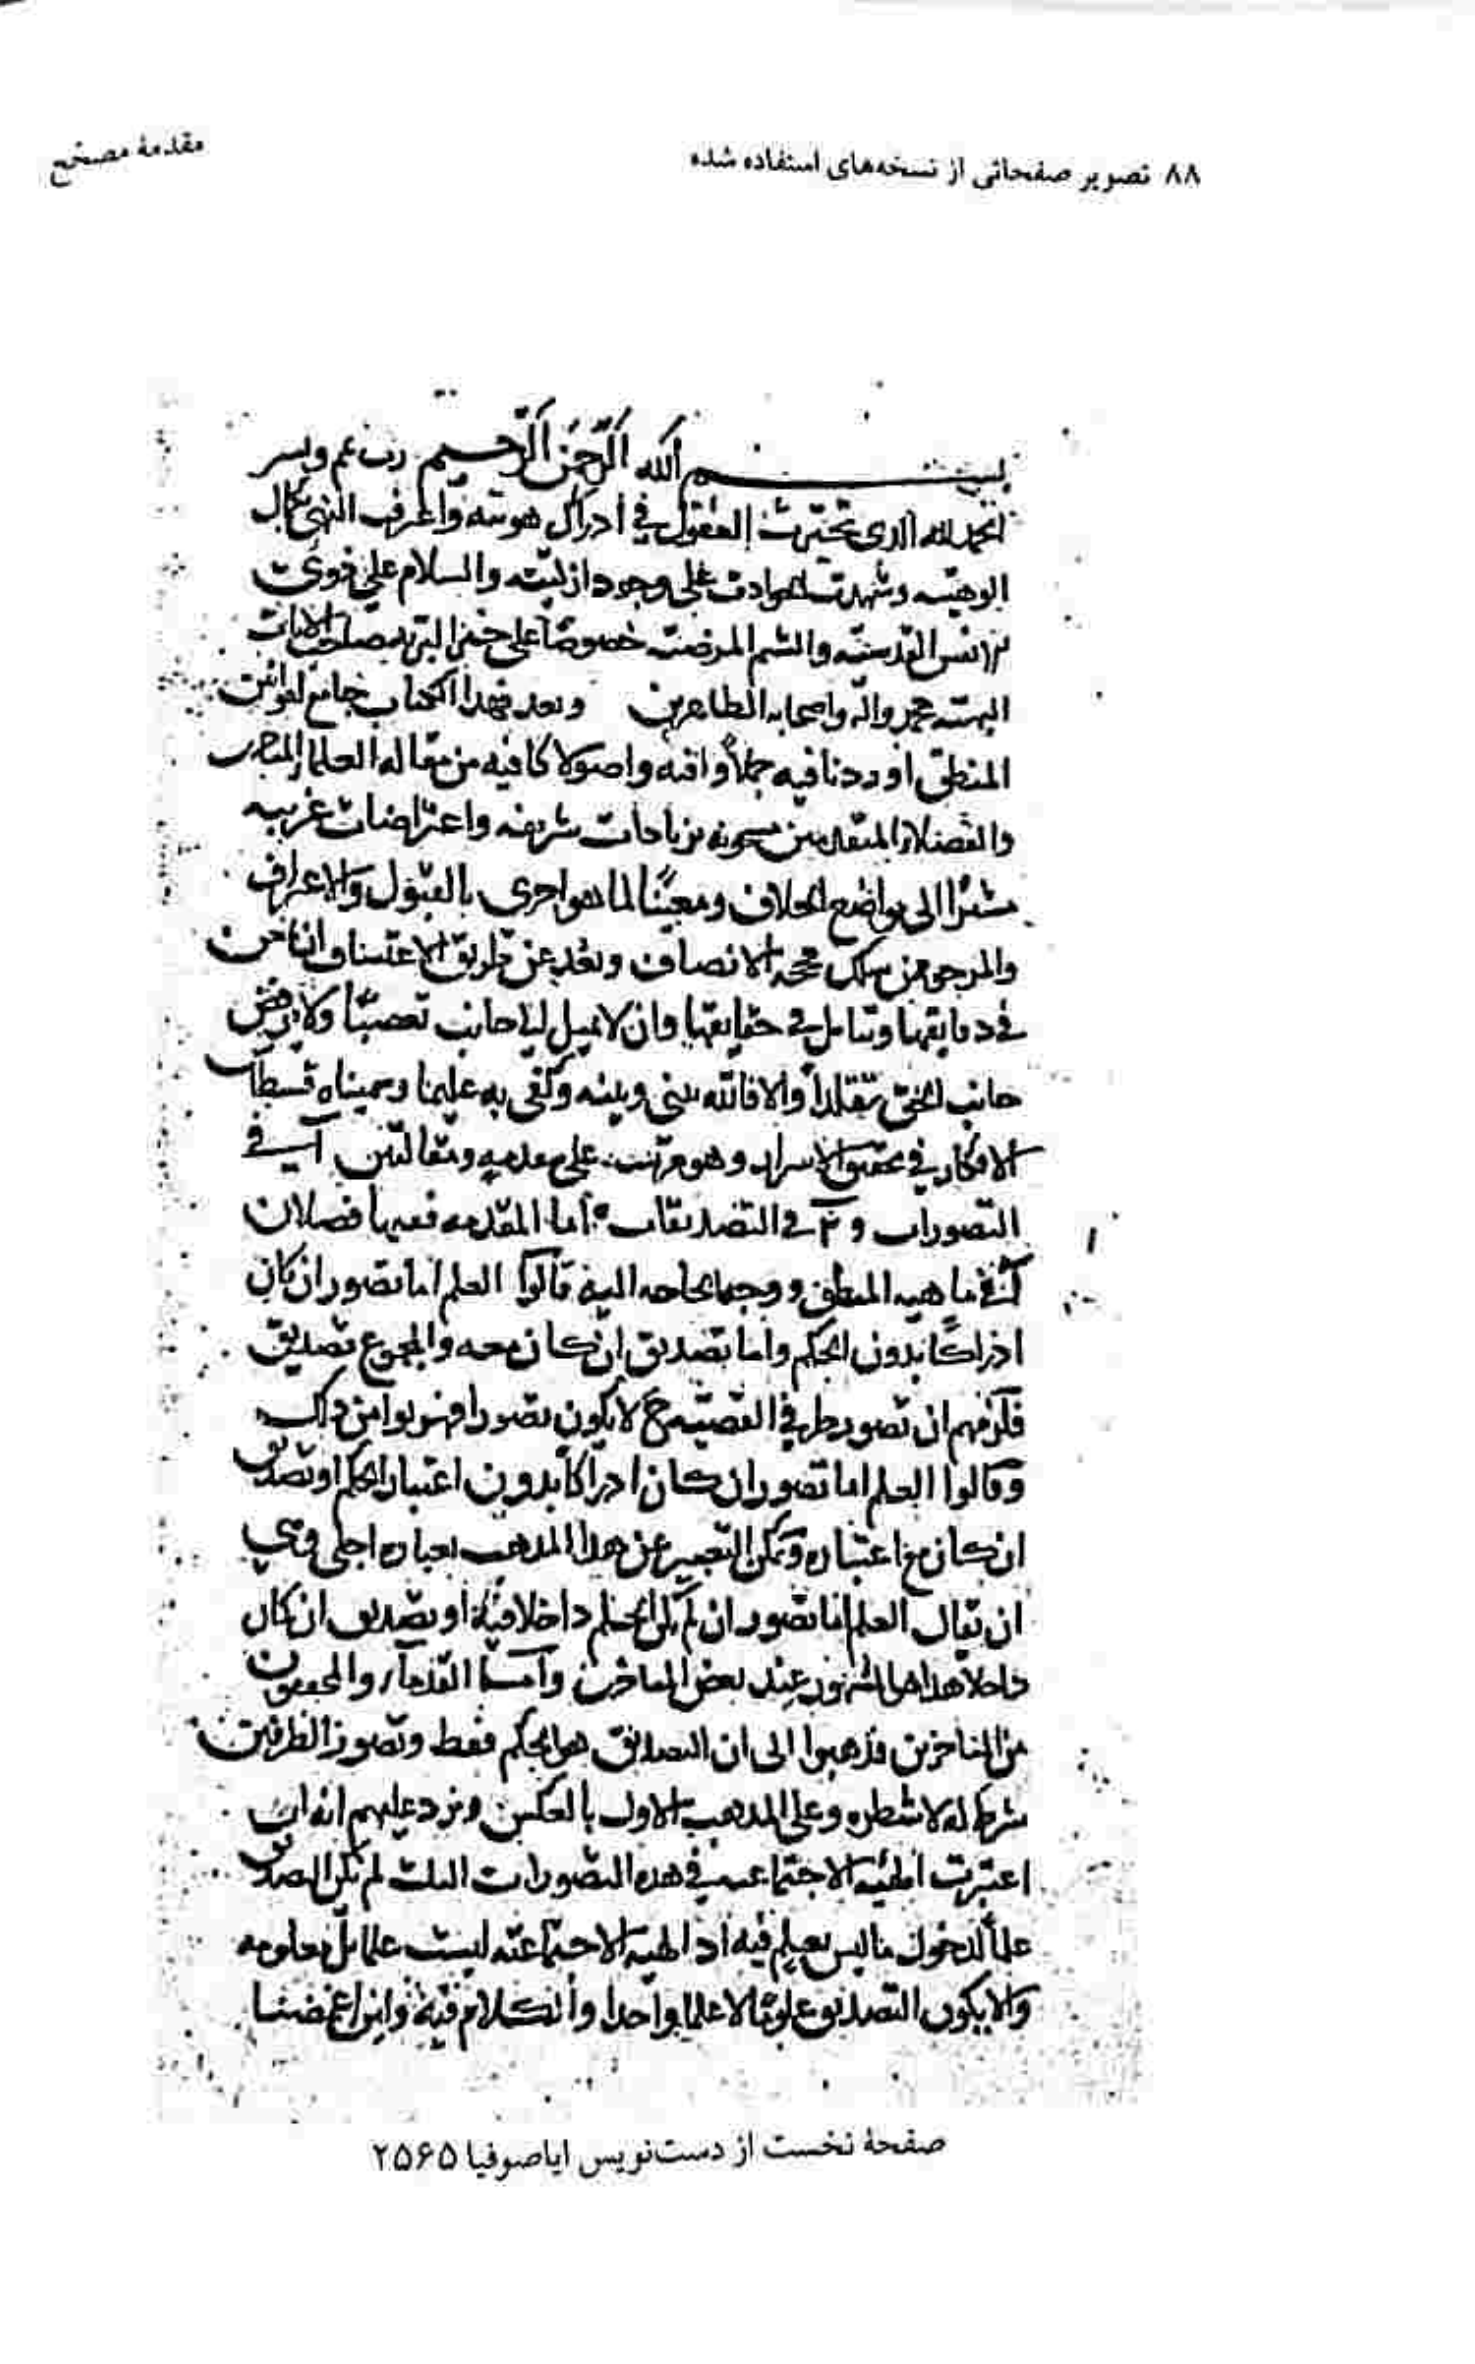 ۸۸ تصویر صفحاتی از نسخه‌های استفاده شده
مقدمهٔ مصحح
بسم الله الرحمن الرحیم رب تمم ویسر
الحمد لله الذی تحیرت العقول فی ادراک هویته واعرف النهی بکمال
الوهیته وشهدت الحوادث علی وجود ازلیته والسلام علی ذوی
الانفس القدسیه والشیم المرضیه خصوصا علی خیر البریه صاحب الآیات
البهیه محمد واله واصحابه الطاهرین وبعد فهذا الکتاب جامع لقوانین
المنطق اوردنا فیه جملا وافیه واصولا کافیه من مقاله العلماء
والفضلاء المتقدمین مشحونه بزیادات شریفه واعتراضات غریبه
مشیرا الی مواضع الخلاف ومعینا لما هو احری بالقبول والاعتراف
والمرجو ممن سلک محجه الانصاف وبعد عن طریق الاعتساف ان
فی دقایقها وتامل فی حقایقها وان لا یمیل الی جانب تعصبا ولا یرفض
جانب الحق تقلیدا والا فالله بینی وبینه وکفی به علیما وسمیناه قسطاس
الافکار فی تحقیق الاسرار وهو مرتب علی مقدمه ومقالتین آ فی
التصورات و ب فی التصدیقات اما المقدمه ففیها فصلان
آ فی ماهیه المنطق ووجه الحاجه الیه قالوا العلم اما تصور ان کان
ادراکا بدون الحکم واما تصدیق ان کان معه والمجموع تصدیق
فلزمهم ان تصور طرفی القضیه ح لا یکون تصورا فهربوا من ذلک
وقالوا العلم اما تصور ان کان ادراکا بدون اعتبار الحکم او تصدیق
ان کان مع اعتباره ویمکن التعبیر عن هذا المذهب بعباره اجلی وهی
ان یقال العلم اما تصور ان لم یکن الحکم داخلا فیه او تصدیق ان کان
داخلا هذا هو المشهور عند بعض المتاخرین واما القدماء والمحققون
من المتاخرین فذهبوا الی ان التصدیق هو الحکم فقط وتصور الطرفین
شرط له لا شطره وعلی المذهب الاول بالعکس ویرد علیهم انه ان
اعتبرت الهیئه الاجتماعیه فی هذه التصورات الثلث لم یکن التصدیق
علما لدخول ما لیس بعلم فیه اذ الهیئه الاجتماعیه لیست علما بل معلومه
والا یکون التصدیق علوما لا علما واحدا والکلام فیه وان اغمضنا
صفحهٔ نخست از دست‌نویس ایاصوفیا ۲۵۶۵